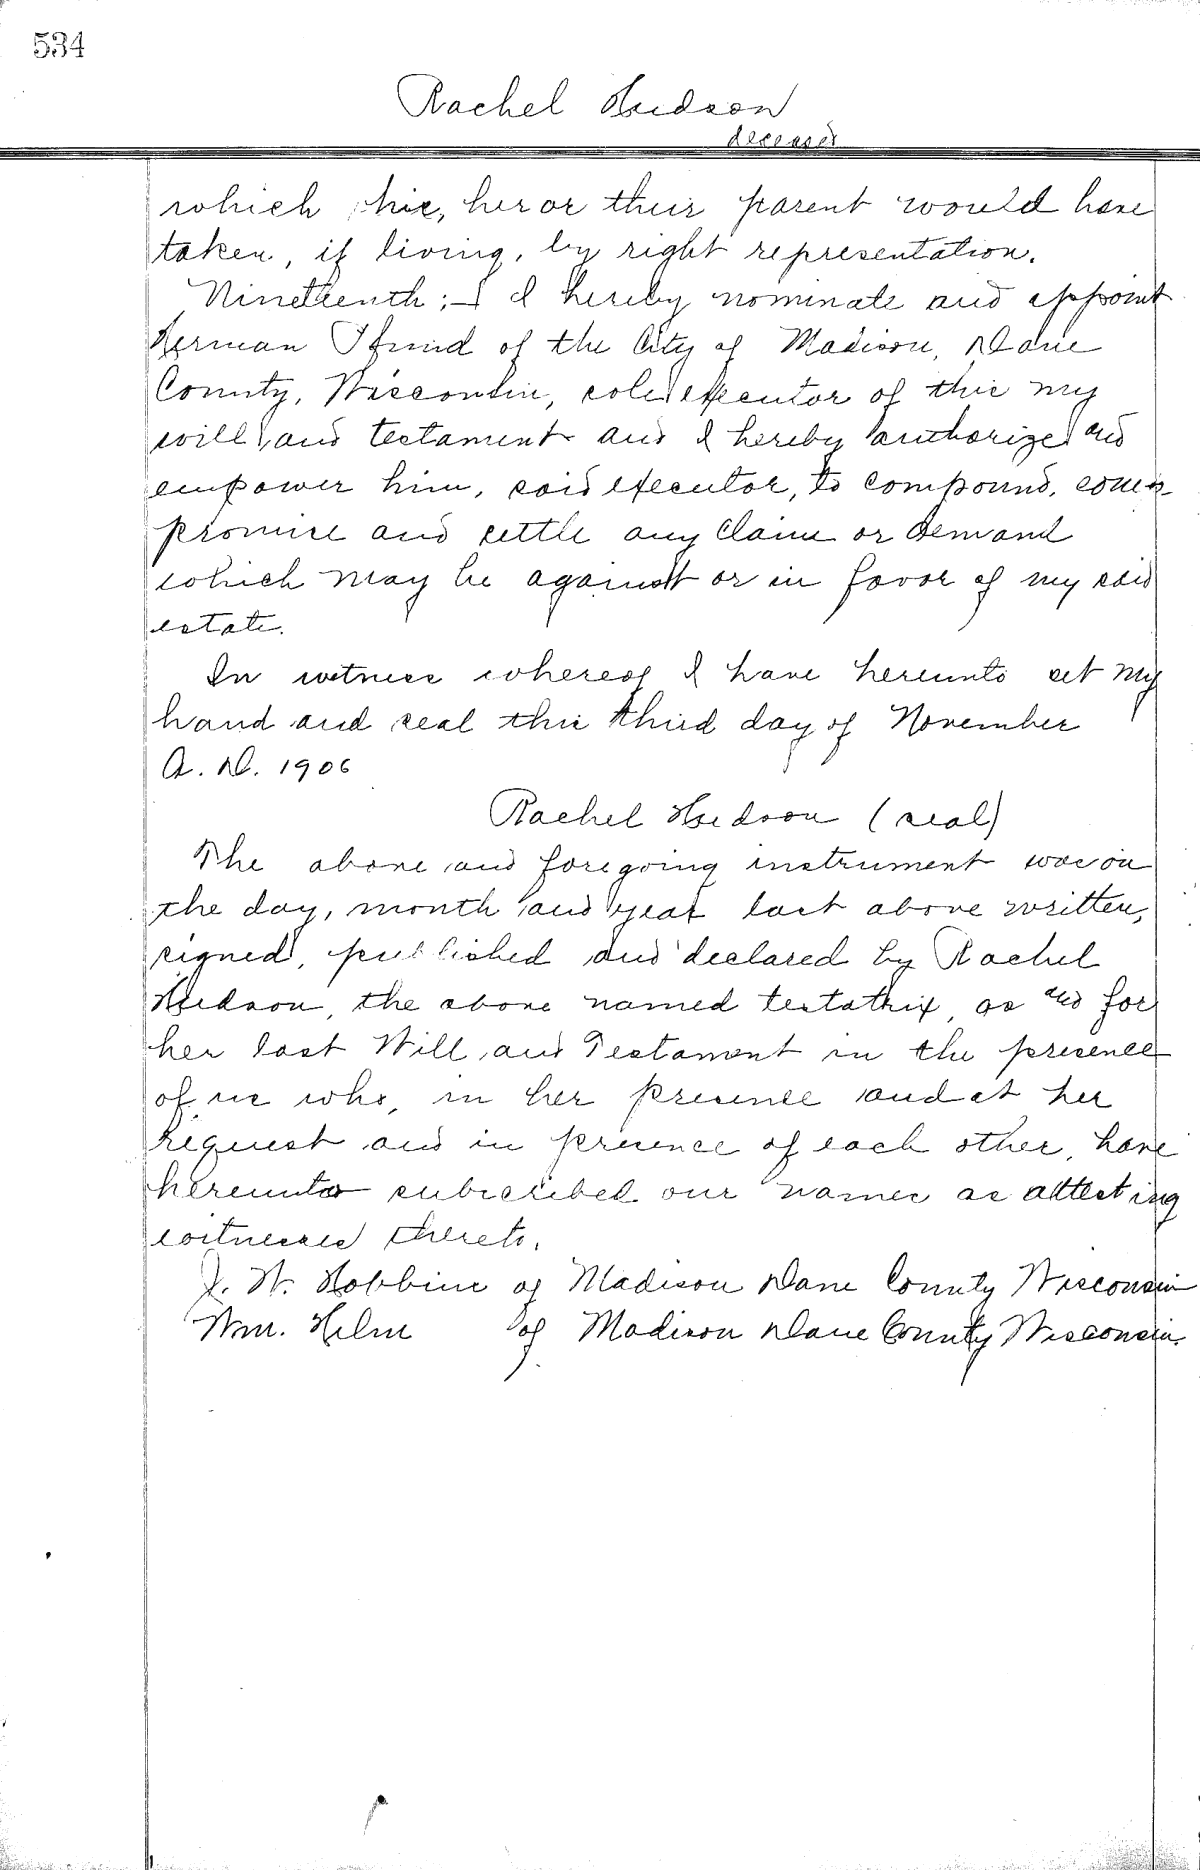 534
Rachel Hudson
deceased
which his, her or their parent would have
taken, if living, by right representation.
Nineteenth:- I hereby nominate and appoint
Herman Pfund of the City of Madison, Dane
County, Wisconsin, sole executor of this my
will and testament and I hereby authorize and
empower him, said executor, to compound, com-
promise and settle any claim or demand
which may be against or in favor of my said
estate.
In witness whereof I have hereunto set my
hand and seal this third day of November
A. D. 1906
Rachel Hudson (seal)
The above and foregoing instrument was on
the day, month and year last above written,
signed, published and declared by Rachel
Hudson, the above named testatrix, as and for
her last Will and Testament in the presence
of us who, in her presence and at her
request and in presence of each other, have
hereunto subscribed our names as attesting
witnesses thereto.
J. W. Hobbins of Madison Dane County Wisconsin
Wm. Helm of Madison Dane County Wisconsin.